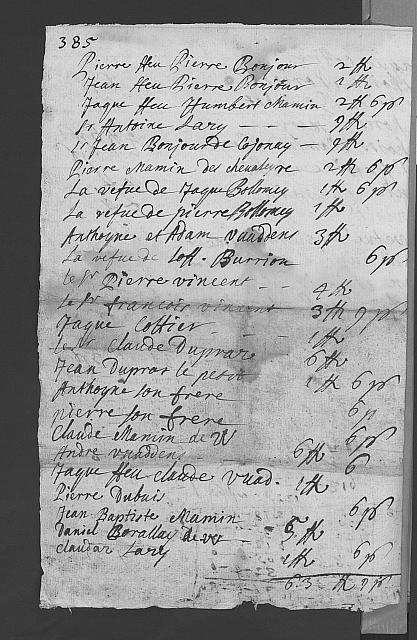 385
Pierre feu Pierre Bonjour 2 ff
Jean feu Pierre Bonjour 2 ff
Jaque feu Humbert Mamin 2 ff 6 pf
sr Antoine Lary — — 9 ff
sr Jean Bonjour de Cojonay — 9 ff
Pierre Mamin des chevaleyre 2 ff 6 pf
La vefue de Jaque Bollomey 1 ff 6 pf
La vefue de pierre Bollomey 1 ff
Anthoyne et Adam vuaddens 3 ff
La vefue de Joff. Burrion 6 pf
le sr Pierre vincent - - 4 ff
le sr francois vincent 3 ff 9 pf
Jaque Cottier - - 1 ff
le sr Claude Dupraz 6 ff
Jean Dupraz le petit 1 ff 6 pf
Anthoyne son frere
pierre son frere 6 p
Claude Mamin de 6 pf
Andre vuaddens 6 ff 6
Jaque feu claude vuad. 1 ff
Pierre Dubuis
Jean Baptiste Mamin 6 pf
Daniel Borallay de 5 ff
claudaz Lary 1 ff 6 pf
63 ff 9 pf